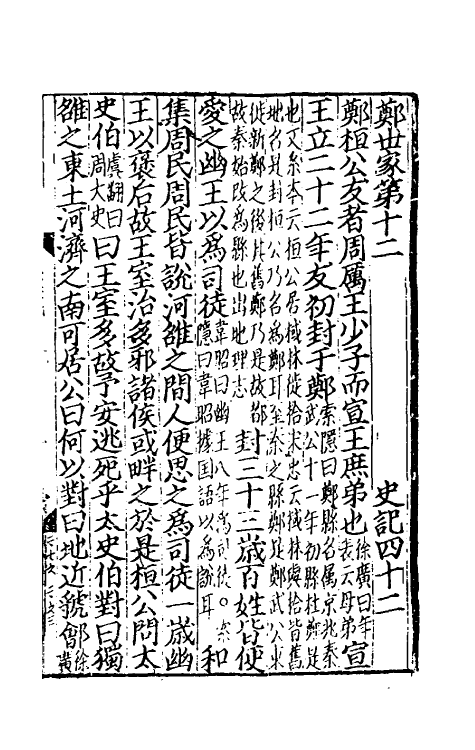 鄭世家第十二 史記四十二
鄭桓公友者周厲王少子而宣王庶弟也徐廣曰年表云母弟宣
王立二十二年友初封于鄭索隱曰鄭縣名屬京兆秦武公十一年初縣杜鄭是
也又系本云桓公居棫林徙拾宋忠云棫林與拾皆舊地名是封桓公乃名為鄭耳至秦之縣鄭是鄭武公東
徙新鄭之後其舊鄭乃是故都故秦始改為縣也出地理志封三十三歲百姓皆便
愛之幽王以為司徒韋昭曰幽王八年為司徒。索隱曰韋昭據国語以為說耳和
集周民周民皆說河雒之間人便思之為司徒一歲幽
王以褒后故王室治多邪諸侯或畔之於是桓公問太
史伯虞翻曰周大史曰王室多故予安逃死乎太史伯對曰獨
雒之東土河濟之南可居公曰何以對曰地近虢鄶徐廣